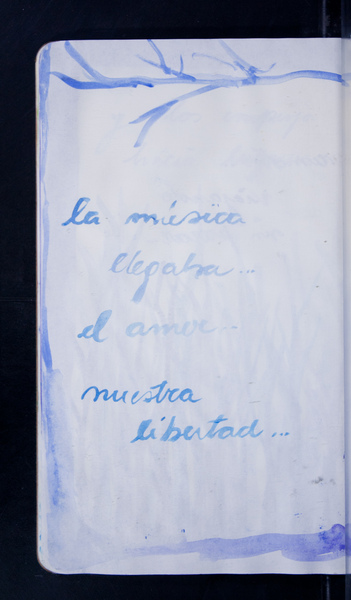 la música
llegaba...
el amor...
nuestra
libertad...